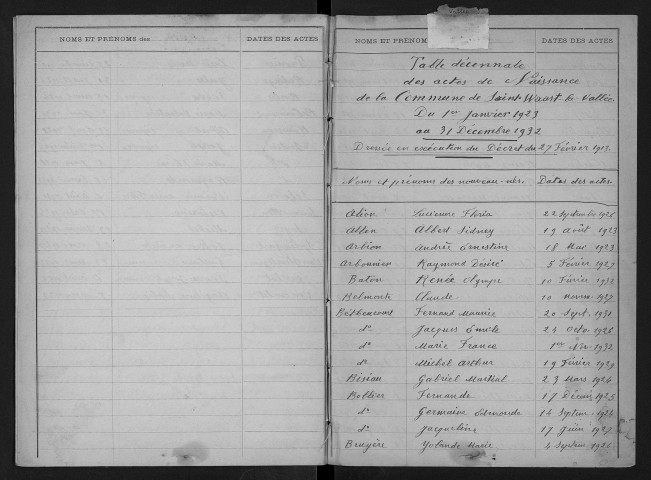 NOMS ET PRÉNOMS des
DATES DES ACTES
NOMS ET PRÉNOM
DATES DES ACTES
Table décennale
des actes de Naissance
de la Commune de Saint-Waast la Vallée
Du 1er Janvier 1923
au 31 Décembre 1932
Dressée en exécution du Décret du 27 Février 1913.
Noms et prénoms des nouveaux-nés Dates des actes
Lucienne 22 Septembre 1926
Albert Sidney 19 Août 1923
Arbion Andrée Ernestine 18 Mai 1923
Arbonnier Raymond Désiré 5 Février 1927
Baton Renée Olympe 10 Février 1932
Belmonte Claude 10 1927
Bethencourt Fernand Maurice 20 Sept. 1930
do Jacques Emile 24 Octo 1926
do Marie France 1er 1932
do Michel Arthur 19 Février 1929
Bisiau Gabriel Martial 23 Mars 1924
Bollier Fernande 17 Décem 1925
do Germaine Edmonde 14 Septem 1924
do Jacqueline 17 Juin 1927
Bruyère Yolande Marie 4 Septem 1926